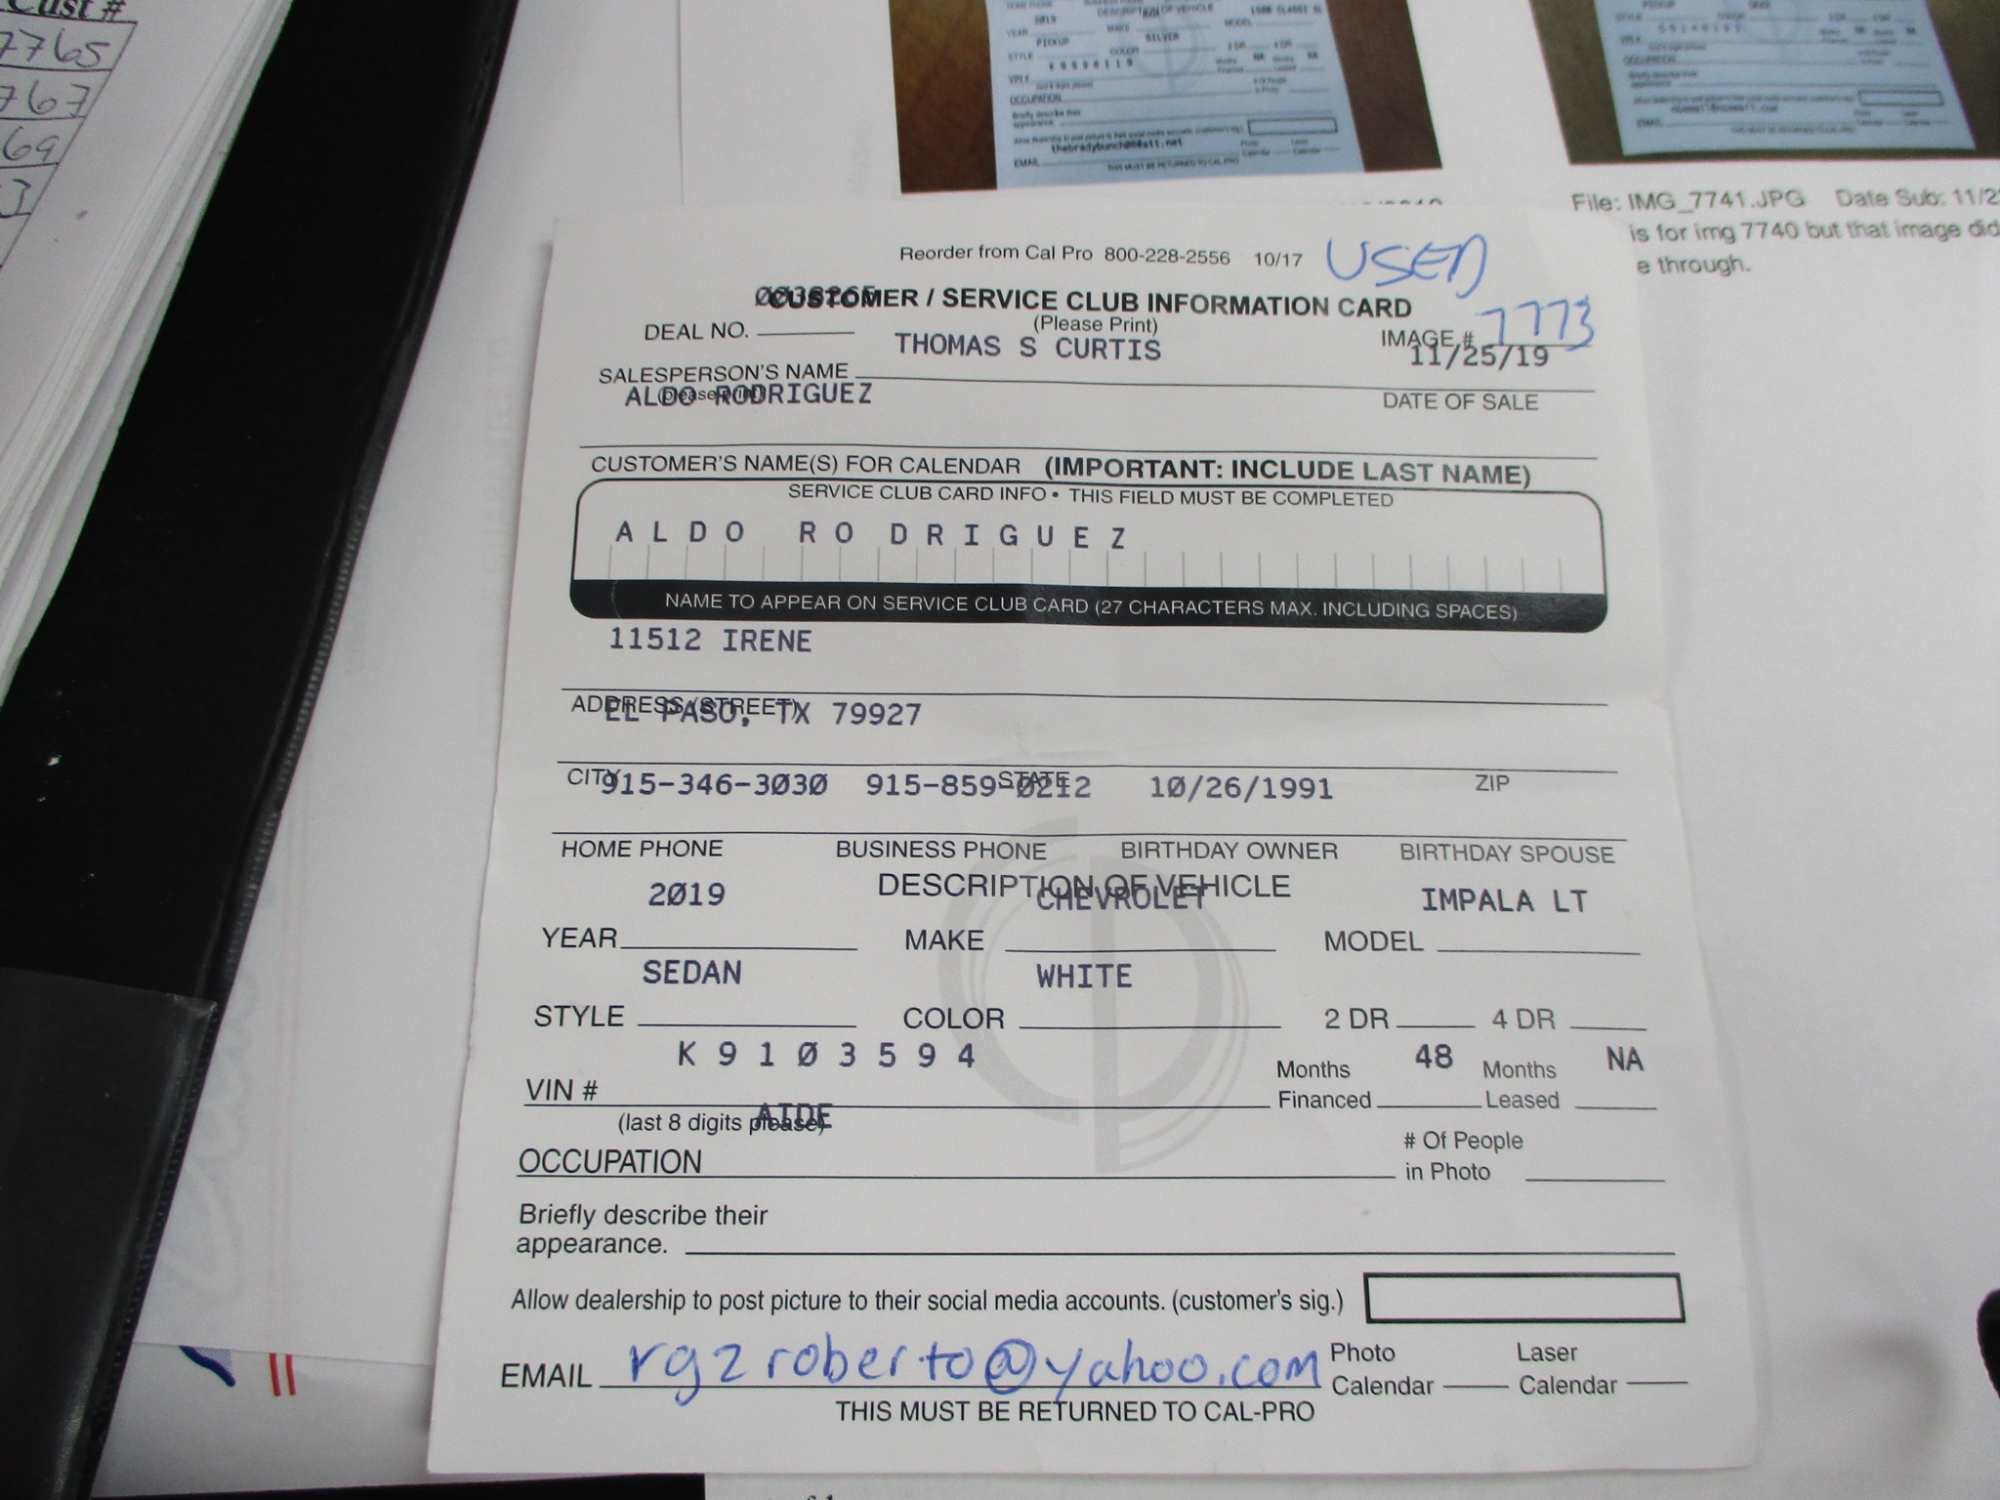 Cust #
7765
767
69
YEAR 2019 DESCRIPTION OF VEHICLE
PICKUP MAKE SILVER MODEL
STYLE COLOR
VIN #
OCCUPATION
EMAIL
THIS MUST BE RETURNED TO CAL-PRO
File: IMG_7741.JPG Date Sub: 11/2
is for img 7740 but that image did
e through.
Reorder from Cal Pro 800-228-2556 10/17 USED
CUSTOMER / SERVICE CLUB INFORMATION CARD
(Please Print)
DEAL NO. IMAGE # 7773
THOMAS S CURTIS 11/25/19
SALESPERSON'S NAME
(please print) DATE OF SALE
ALDO RODRIGUEZ
CUSTOMER'S NAME(S) FOR CALENDAR (IMPORTANT: INCLUDE LAST NAME)
SERVICE CLUB CARD INFO • THIS FIELD MUST BE COMPLETED
ALDO RODRIGUEZ
NAME TO APPEAR ON SERVICE CLUB CARD (27 CHARACTERS MAX. INCLUDING SPACES)
11512 IRENE
ADDRESS (STREET)
EL PASO, TX 79927
CITY STATE ZIP
915-346-3030 915-859-0212 10/26/1991
HOME PHONE BUSINESS PHONE BIRTHDAY OWNER BIRTHDAY SPOUSE
DESCRIPTION OF VEHICLE
2019 CHEVROLET IMPALA LT
YEAR MAKE MODEL
SEDAN WHITE
STYLE COLOR 2 DR 4 DR
K9103594 48 NA
VIN # Months Financed Months Leased
(last 8 digits please)
AIDE
OCCUPATION # Of People in Photo
Briefly describe their
appearance.
Allow dealership to post picture to their social media accounts. (customer's sig.)
EMAIL rgzroberto@yahoo.com Photo Calendar Laser Calendar
THIS MUST BE RETURNED TO CAL-PRO